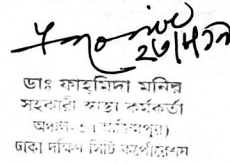 ২৬/৪
ডাঃ ফাহমিদা মনির
সহকারী স্বাস্থ্য কর্মকর্তা
অঞ্চল-১
ঢাকা দক্ষিণ সিটি কর্পোরেশন